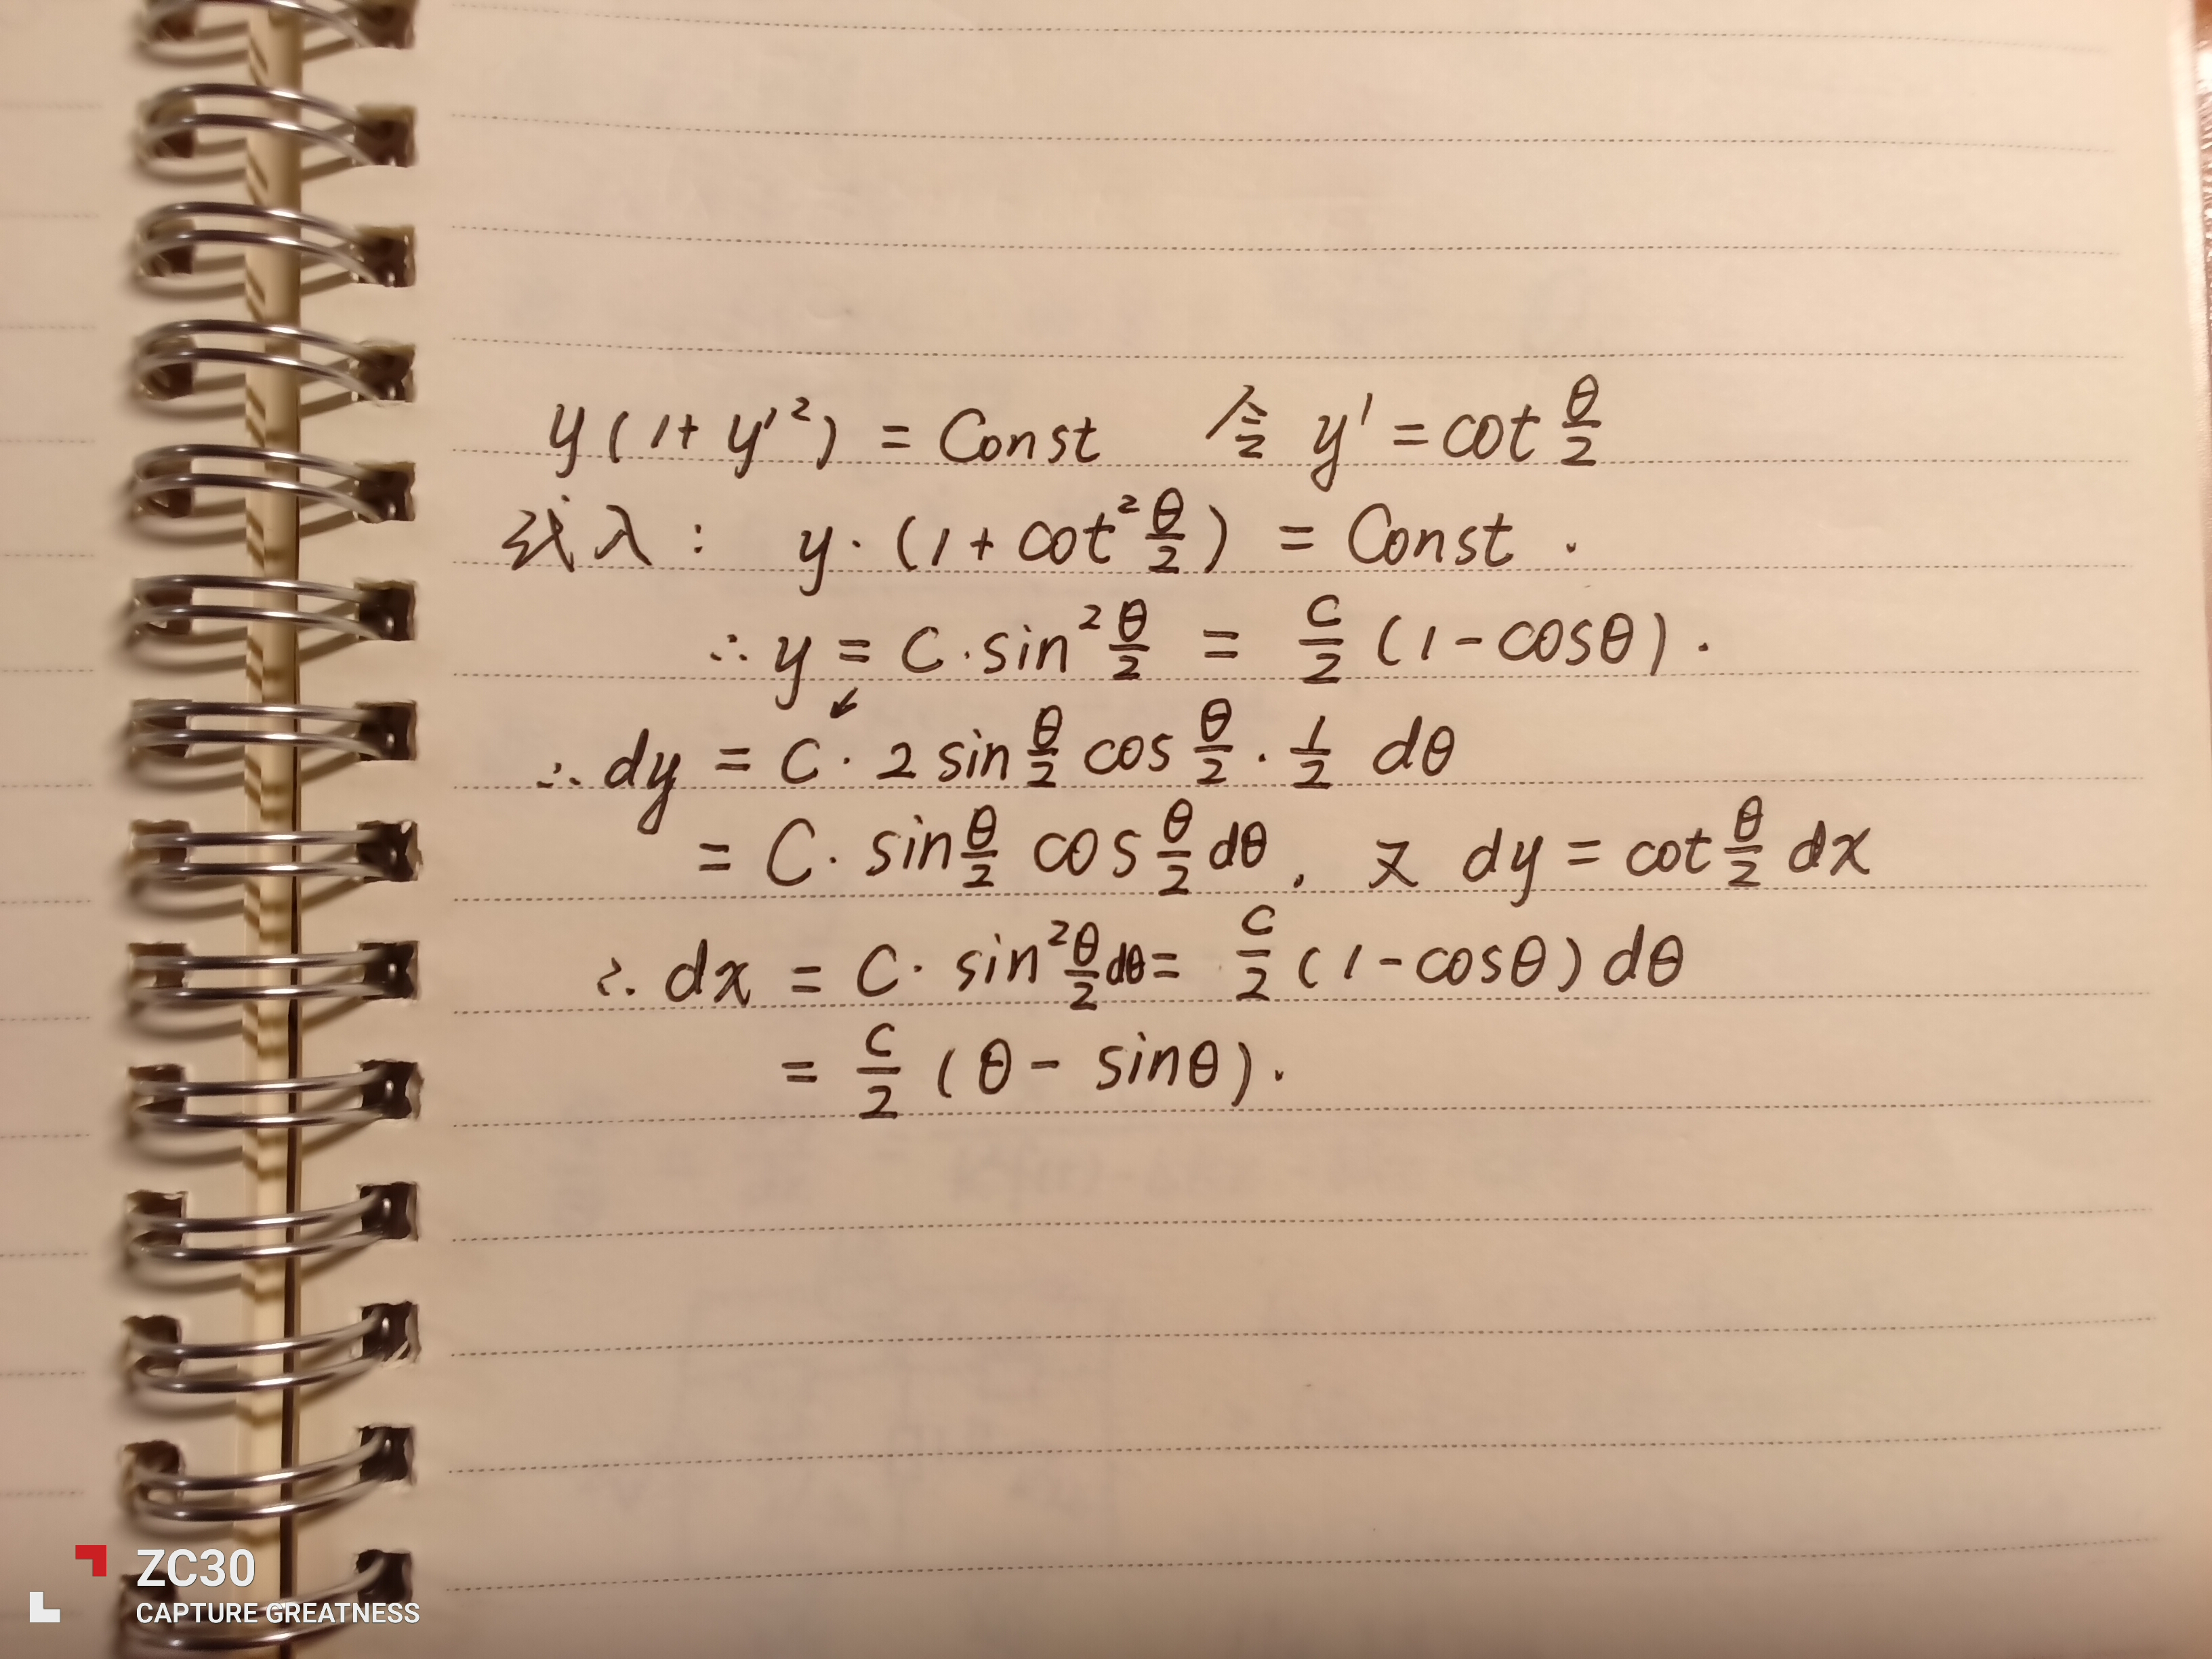 y(1+y'²) = Const 令 y' = cot θ/2
代入: y·(1+cot² θ/2) = Const.
∴ y = C·sin² θ/2 = C/2 (1-cosθ).
∴ dy = C·2 sin θ/2 cos θ/2 · 1/2 dθ
= C· sin θ/2 cos θ/2 dθ, 又 dy = cot θ/2 dx
∴ dx = C· sin² θ/2 dθ = C/2 (1-cosθ) dθ
= C/2 (θ - sinθ).
ZC30
CAPTURE GREATNESS